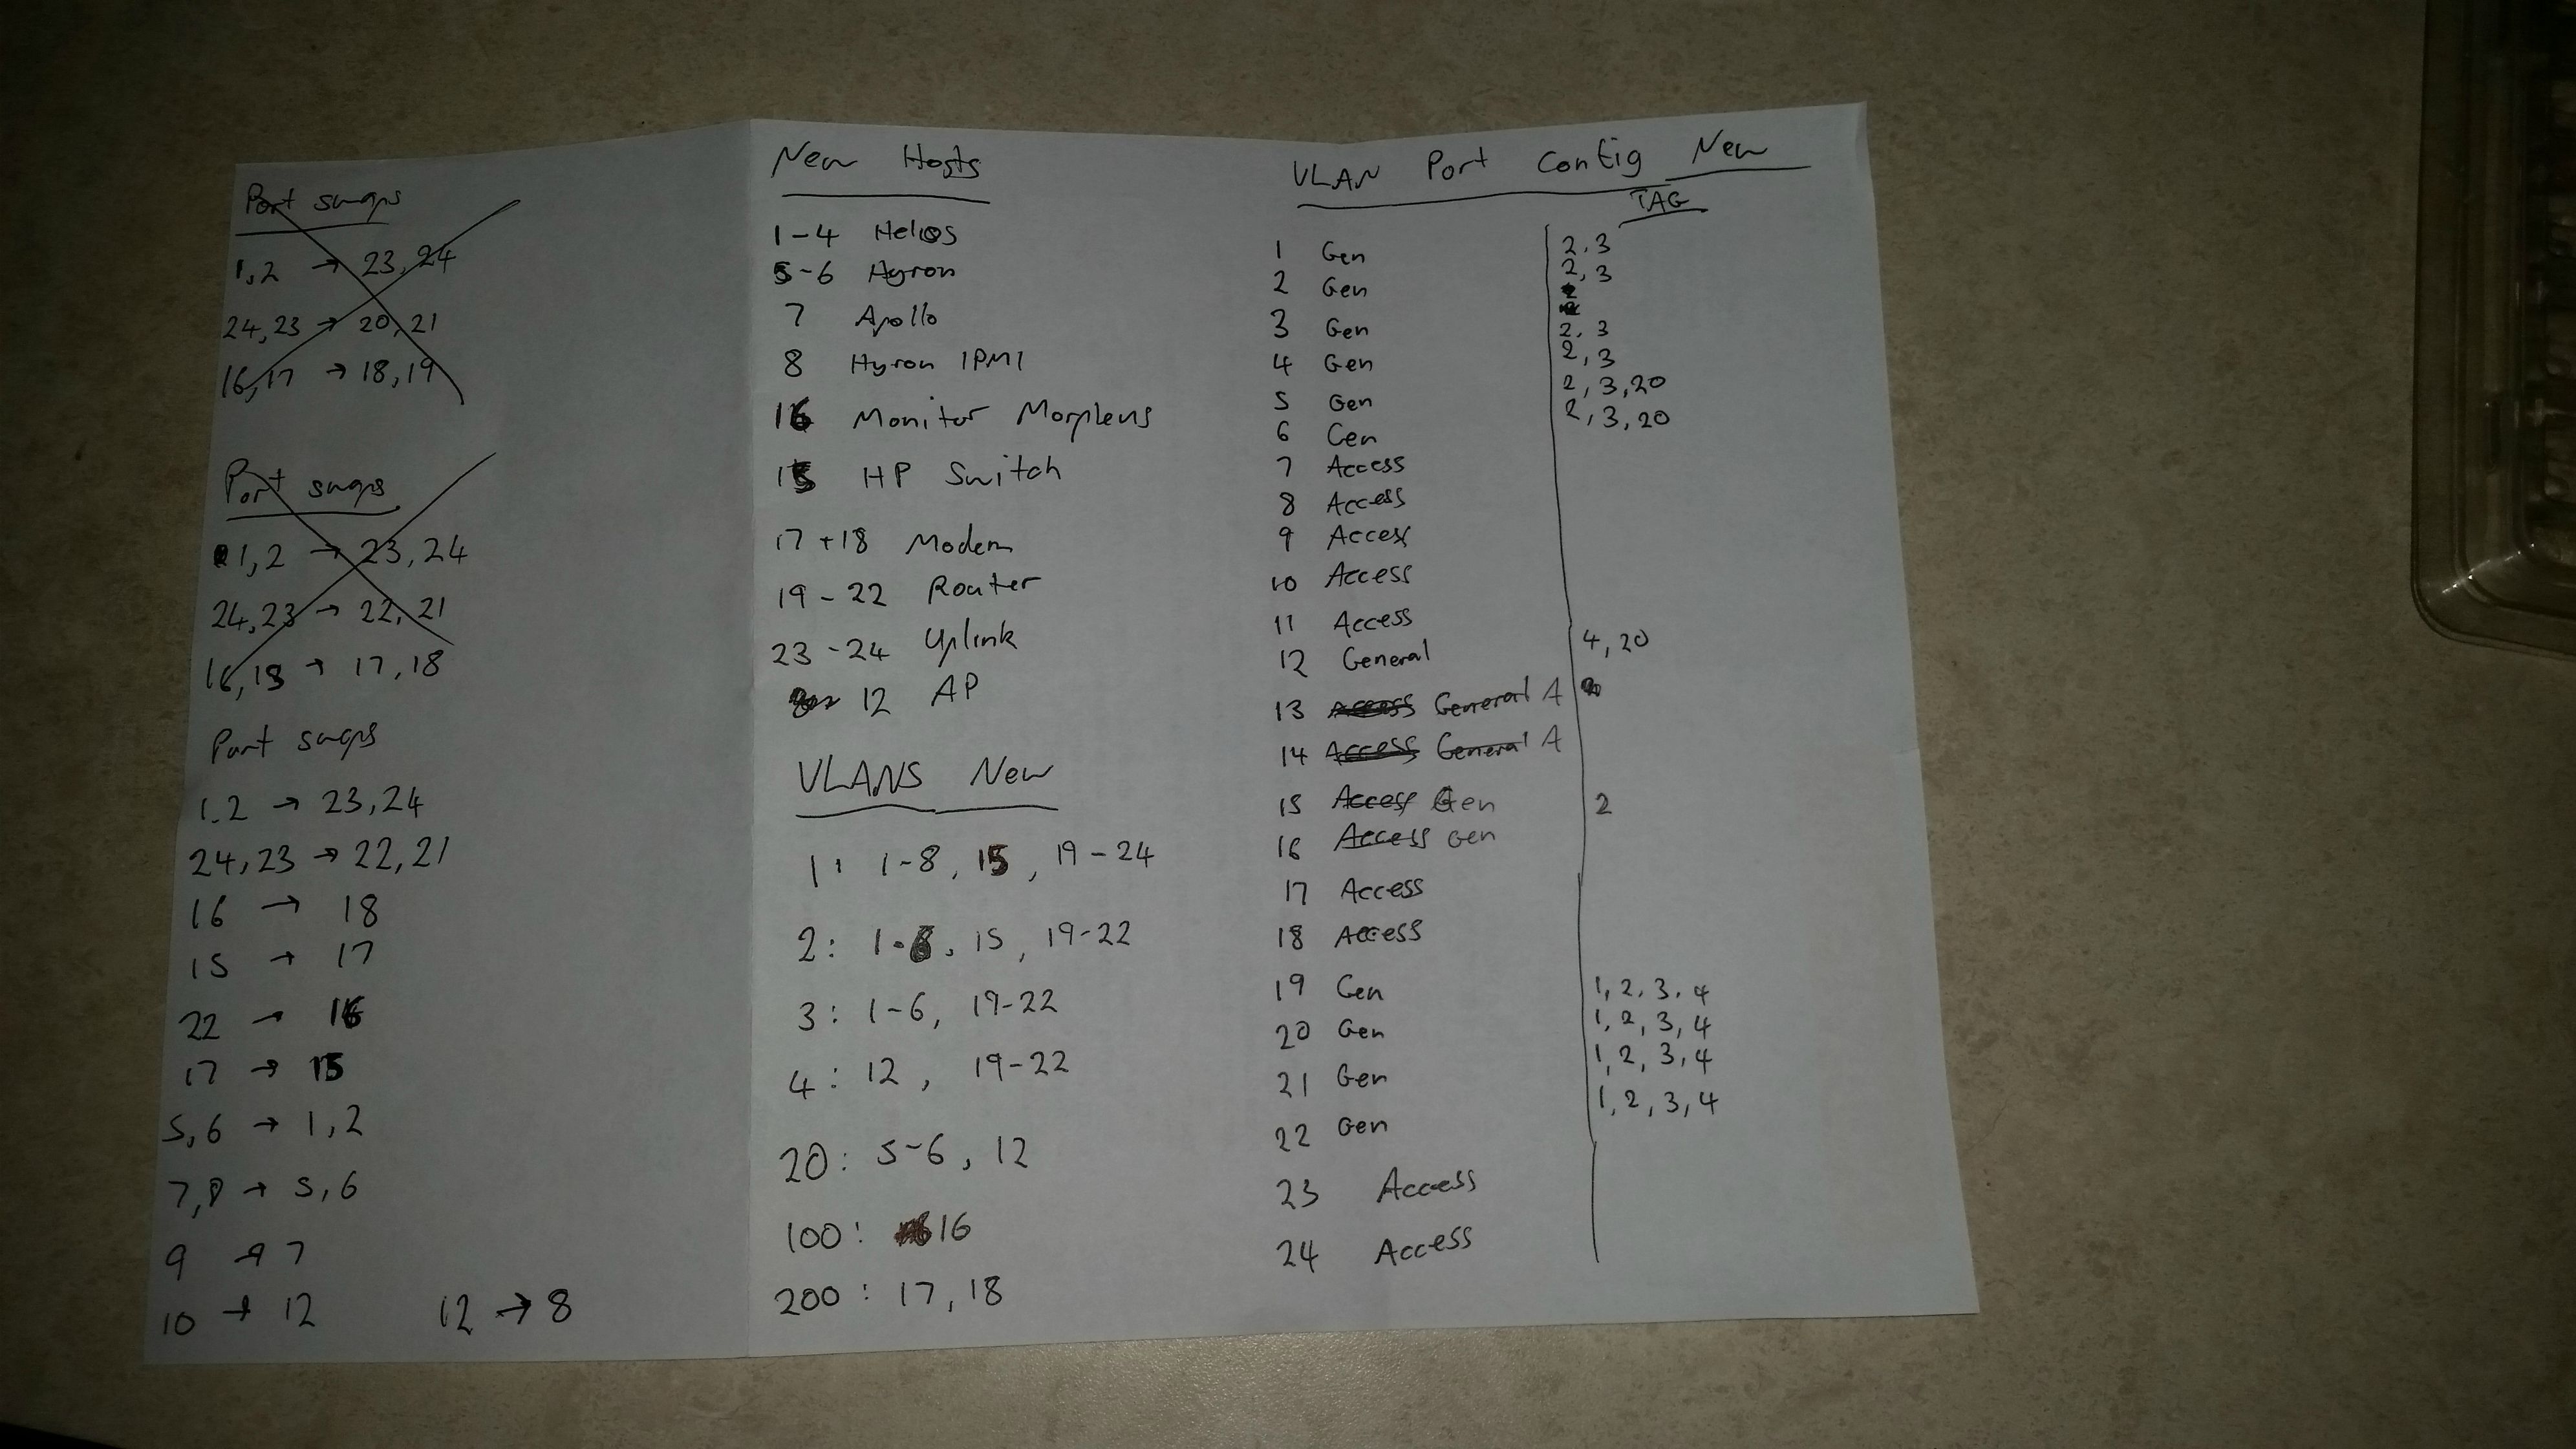 Port swaps
1,2 → 23,24
24,23 → 20,21
16,17 → 18,19
Port swaps
1,2 → 23,24
24,23 → 22,21
16,15 → 17,18
Port swaps
1.2 → 23,24
24,23 → 22,21
16 → 18
15 → 17
22 → 16
17 → 15
5,6 → 1,2
7,8 → 5,6
9 → 7
10 → 12 12 → 8
New Hosts
1-4 Helios
5-6 Hyron
7 Apollo
8 Hyron IPMI
16 Monitor Morpheus
15 HP Switch
17+18 Modem
19-22 Router
23-24 Uplink
12 AP
VLANS New
1: 1-8, 15, 19-24
2: 1-6, 15, 19-22
3: 1-6, 19-22
4: 12, 19-22
20: 5-6, 12
100: 16
200: 17,18
VLAN Port Config New
TAG
1 Gen 2,3
2 Gen 2,3
3 Gen 2,3
4 Gen 2,3
5 Gen 2,3,20
6 Gen 2,3,20
7 Access
8 Access
9 Access
10 Access
11 Access
12 General 4,20
13 Access General A
14 Access General A
15 Access Gen 2
16 Access Gen
17 Access
18 Access
19 Gen 1,2,3,4
20 Gen 1,2,3,4
21 Gen 1,2,3,4
22 Gen 1,2,3,4
23 Access
24 Access